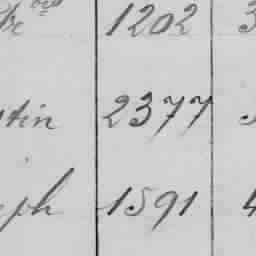 1202 3
tin 2377
eph 1591 4